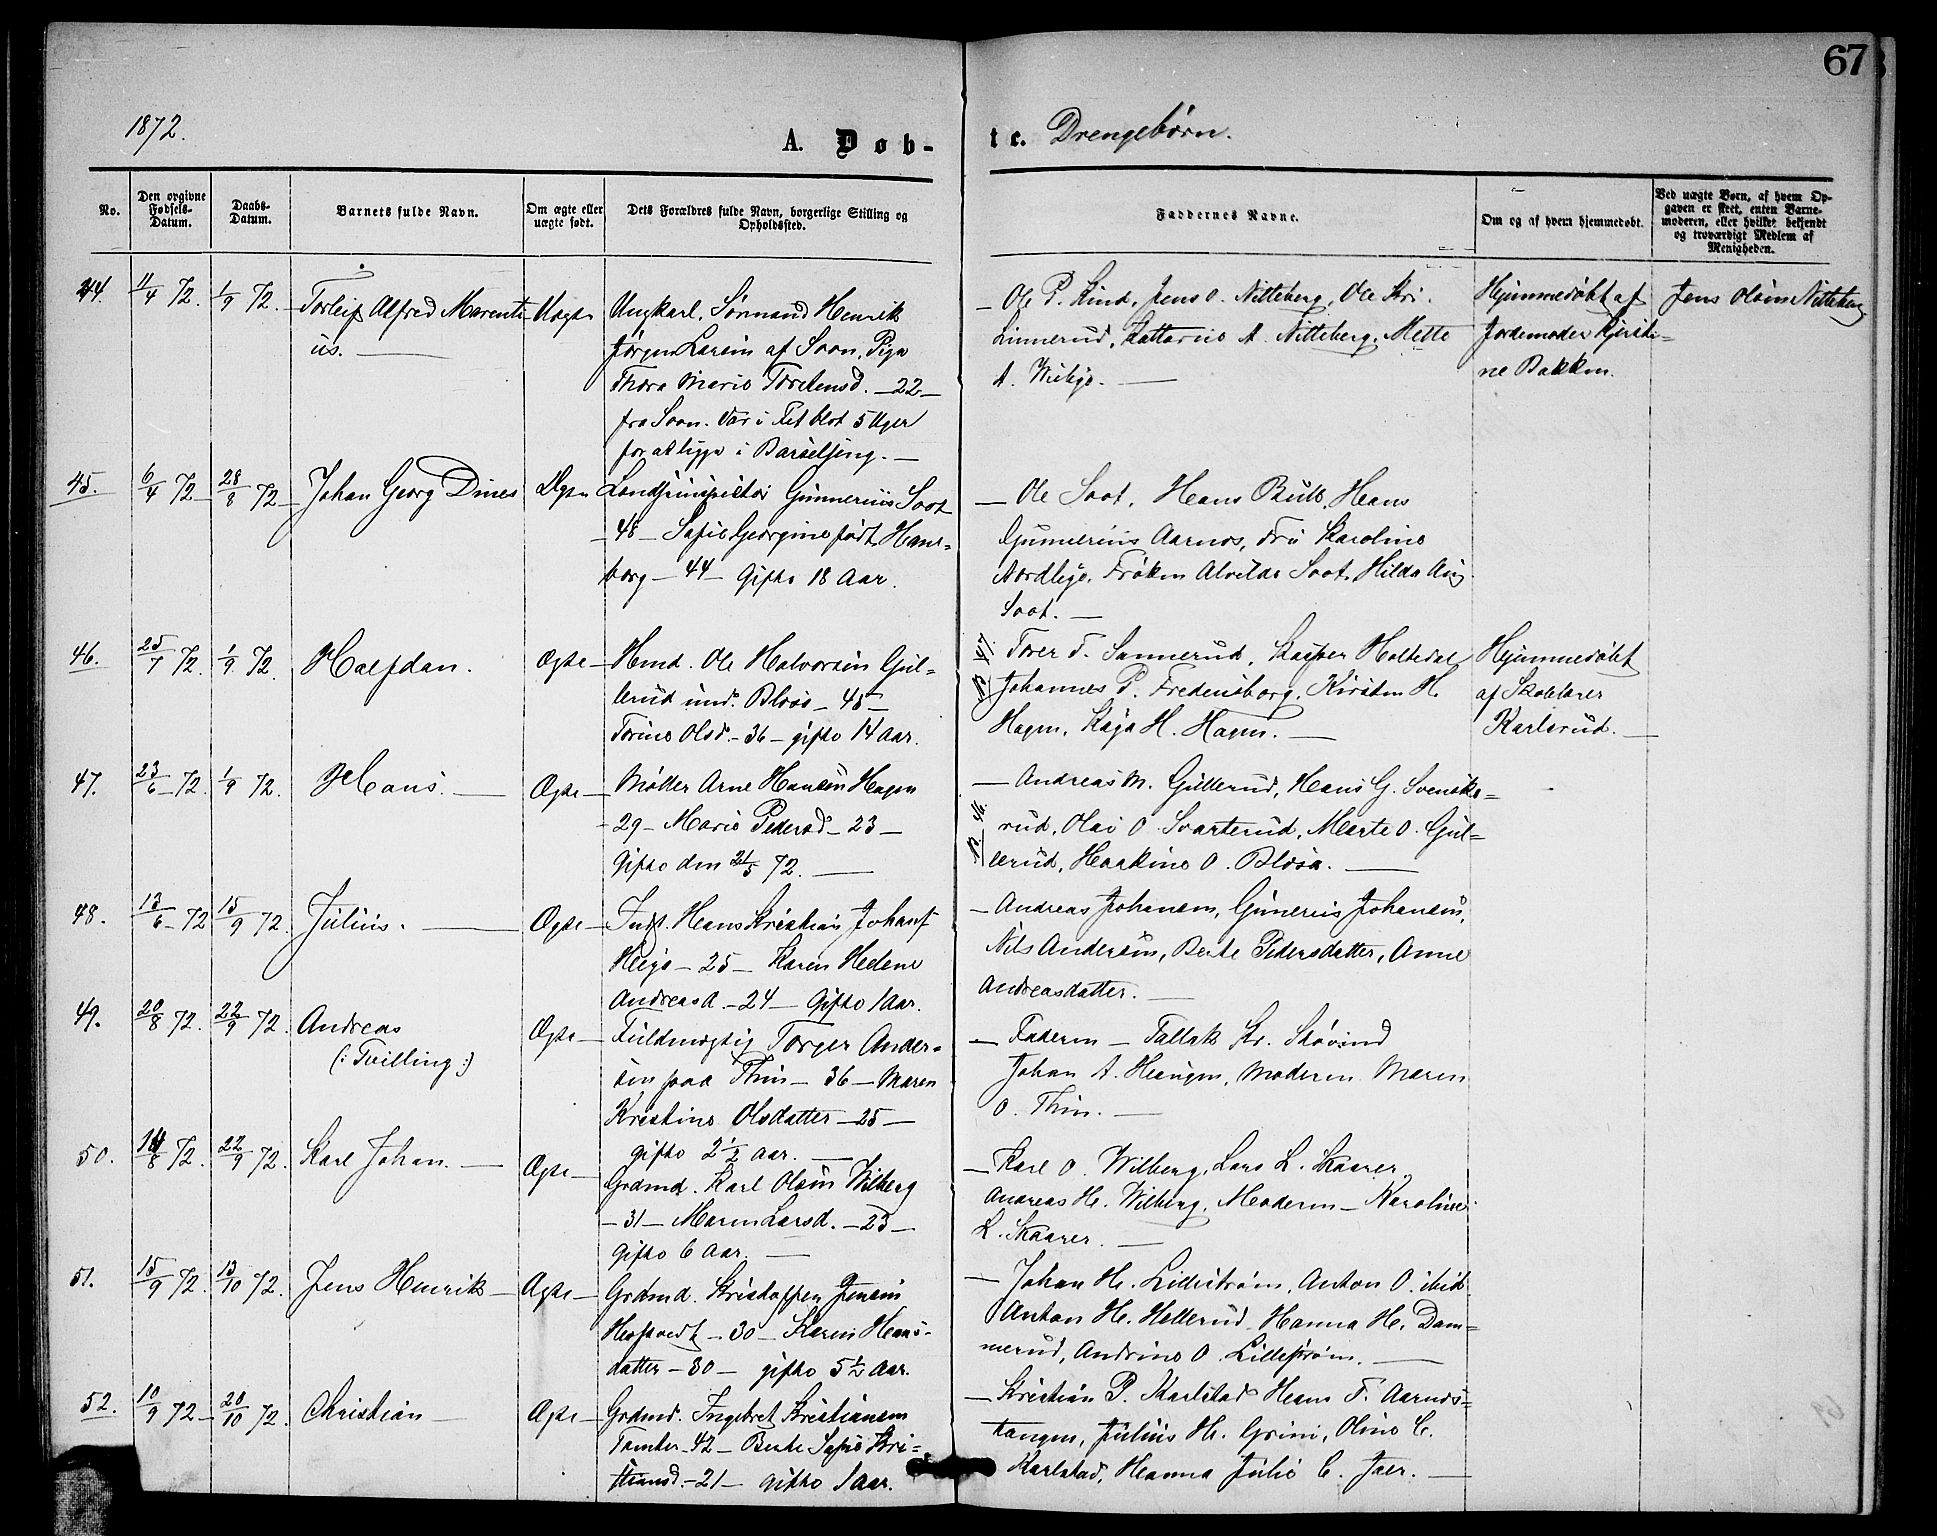 67
1872.
A. Døb-
te. Drengebørn.
No.
Den opgivne Fødsels-Datum.
Daabs-Datum.
Barnets fulde Navn.
Om ægte eller uægte født.
Dets Forældres fulde Navn, borgerlige Stilling og Opholdssted.
Faddernes Navne.
Om og af hvem hjemmedøbt.
Ved uægte Børn, af hvem Opgaven er skeet, enten Barnemoderen, eller hvilket bekjendt og troværdigt Medlem af Menigheden.
44. 11/4 72. 1/9 72. Torleif Alfred Marenti- Uægte Ungkarl, Sømand Henrik
us. Jørgen Larsen af Soon, Pige
Thora Marie Torstensd. - 22 -
fra Soon. Var i Fet blot 5 Uger
for at ligge i Barselseng. -
- Ole P. Lund, Jens O. Nitteberg, Ole Kri.
Linnerud, Kattarine A. Nitteberg, Mette
A.
Hjemmedøbt af
Jordemoder Kjersti-
ne Bakken.
Jens Olsen Nitteberg
45. 6/4 72 - 28/8 72 - Johan Georg Dines Ægte Gunnerius Soot
- 48 - Sofie Georgine født Hans-
borg - 44 - Gifte 18 Aar.
- Ole Soot, Hans Bull, Hans
Gunnerius Aarnes, Fru Karoline
Nordbye, Frøken Alvilde Soot, Hilda Aug.
Soot. -
46. 25/7 72. 1/9 72. Halfdan. Ægte - Hmd. Ole Halvorsen Gul-
lerud und. Blaas - 45 -
Torine Olsd. - 36 - gifte 14 Aar.
Torer T. Sannerud, Kasper Holtedal
Johannes P. Fredensborg, Kirsten H.
Hagen, Kaja H. Hagen. -
Hjemmedøbt
af Skolelærer
Karlsrud. -
47. 23/6 72. 1/9 72. Hans. - Ægte - Møller Arne Hansen Hagen
- 29 - Marie Pedersd - 23 -
Gifte den 21/5 72. -
- Andreas M. Gullerud, Hans G. Svenske-
rud, Olai O. Svarterud, Marte O. Gul-
lerud, Haakine O. Blaasa. -
48. 13/6 72 15/9 72. Julius. - Ægte - Inds. Hans Kristian Johans.
Heije - 25 - Karen Helene
Andreasd. - 24 - Gifte 1 Aar.
- Andreas Johansen, Gunerius Johansen,
Nils Andersen, Berte Pedersdatter, Anne
Andreasdatter. -
49. 20/8 72. 22/9 72. Andreas Ægte - Fuldmægtig Torger Ander-
(: Tvilling :) sen paa Thiin - 36 - Maren
Kristine Olsdatter - 25 -
gifte 2 1/2 Aar. -
- Faderen - Tallak Kr. Skøvind
Johan A. Haugen, Moderen Maren
O. Thiin. -
50. 14/8 72. 22/9 72. Karl Johan. - Ægte - Grdmd. Karl Olsen Wilberg
- 31 - Maren Larsd. - 23 -
Gifte 6 Aar. -
- Karl O. Wilberg, Lars L. Skaarer,
Andreas H. Wilberg, Moderen - Karoline
L. Skaarer. -
51. 15/9 72. 13/10 72. Jens Henrik - Ægte - Grdmd. Kristoffen Jensen
- 30 - Karen Hans-
datter - 30 - gifte 5 1/2 Aar.
- Johan H. Lillestrøm, Anton O. ibid.
Anton H. Hellerud, Hanna H. Dam-
merud, Andrine O. Lillestrøm. -
52. 10/9 72 - 20/10 72. Christian - Ægte - Grdmd. Ingebret Kristiansen
Tomter - 42 - Berte Sofie Kri-
stiansd. - 21 - gifte 1 Aar.
- Kristian P. Karlstad Hans T. Aarnes-
tangen, Julius H. Grini, Oline C.
Karlstad, Hanna Julie C. Jaer. -